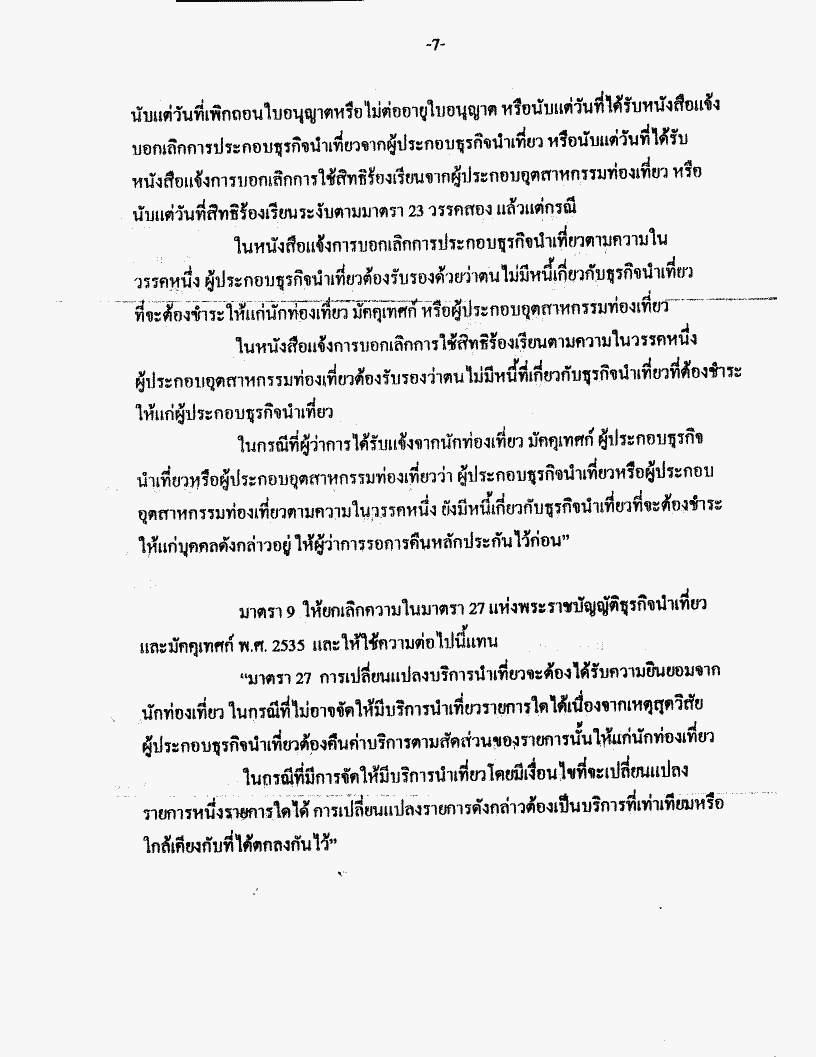 -7-
นับแต่วันที่เพิกถอนใบอนุญาตหรือไม่ต่ออายุใบอนุญาต หรือนับแต่วันที่ได้รับหนังสือแจ้ง
บอกเลิกการประกอบธุรกิจนำเที่ยวจากผู้ประกอบธุรกิจนำเที่ยว หรือนับแต่วันที่ได้รับ
หนังสือแจ้งการบอกเลิกการใช้สิทธิร้องเรียนจากผู้ประกอบอุตสาหกรรมท่องเที่ยว หรือ
นับแต่วันที่สิทธิร้องเรียนระงับตามมาตรา 23 วรรคสอง แล้วแต่กรณี
ในหนังสือแจ้งการบอกเลิกการประกอบธุรกิจนำเที่ยวตามความใน
วรรคหนึ่ง ผู้ประกอบธุรกิจนำเที่ยวต้องรับรองด้วยว่าตนไม่มีหนี้เกี่ยวกับธุรกิจนำเที่ยว
ที่จะต้องชำระให้แก่นักท่องเที่ยว มัคคุเทศก์ หรือผู้ประกอบอุตสาหกรรมท่องเที่ยว
ในหนังสือแจ้งการบอกเลิกการใช้สิทธิร้องเรียนตามความในวรรคหนึ่ง
ผู้ประกอบอุตสาหกรรมท่องเที่ยวต้องรับรองว่าตนไม่มีหนี้ที่เกี่ยวกับธุรกิจนำเที่ยวที่ต้องชำระ
ให้แก่ผู้ประกอบธุรกิจนำเที่ยว
ในกรณีที่ผู้ว่าการได้รับแจ้งจากนักท่องเที่ยว มัคคุเทศก์ ผู้ประกอบธุรกิจ
นำเที่ยวหรือผู้ประกอบอุตสาหกรรมท่องเที่ยวว่า ผู้ประกอบธุรกิจนำเที่ยวหรือผู้ประกอบ
อุตสาหกรรมท่องเที่ยวตามความในวรรคหนึ่ง ยังมีหนี้เกี่ยวกับธุรกิจนำเที่ยวที่จะต้องชำระ
ให้แก่บุคคลดังกล่าวอยู่ ให้ผู้ว่าการรอการคืนหลักประกันไว้ก่อน”
มาตรา 9 ให้ยกเลิกความในมาตรา 27 แห่งพระราชบัญญัติธุรกิจนำเที่ยว
และมัคคุเทศก์ พ.ศ. 2535 และให้ใช้ความต่อไปนี้แทน
“มาตรา 27 การเปลี่ยนแปลงบริการนำเที่ยวจะต้องได้รับความยินยอมจาก
นักท่องเที่ยว ในกรณีที่ไม่อาจจัดให้มีบริการนำเที่ยวรายการใดได้เนื่องจากเหตุสุดวิสัย
ผู้ประกอบธุรกิจนำเที่ยวต้องคืนค่าบริการตามสัดส่วนของรายการนั้นให้แก่นักท่องเที่ยว
ในกรณีที่มีการจัดให้มีบริการนำเที่ยวโดยมีเงื่อนไขที่จะเปลี่ยนแปลง
รายการหนึ่งรายการใดได้ การเปลี่ยนแปลงรายการดังกล่าวต้องเป็นบริการที่เท่าเทียมหรือ
ใกล้เคียงกับที่ได้ตกลงกันไว้”